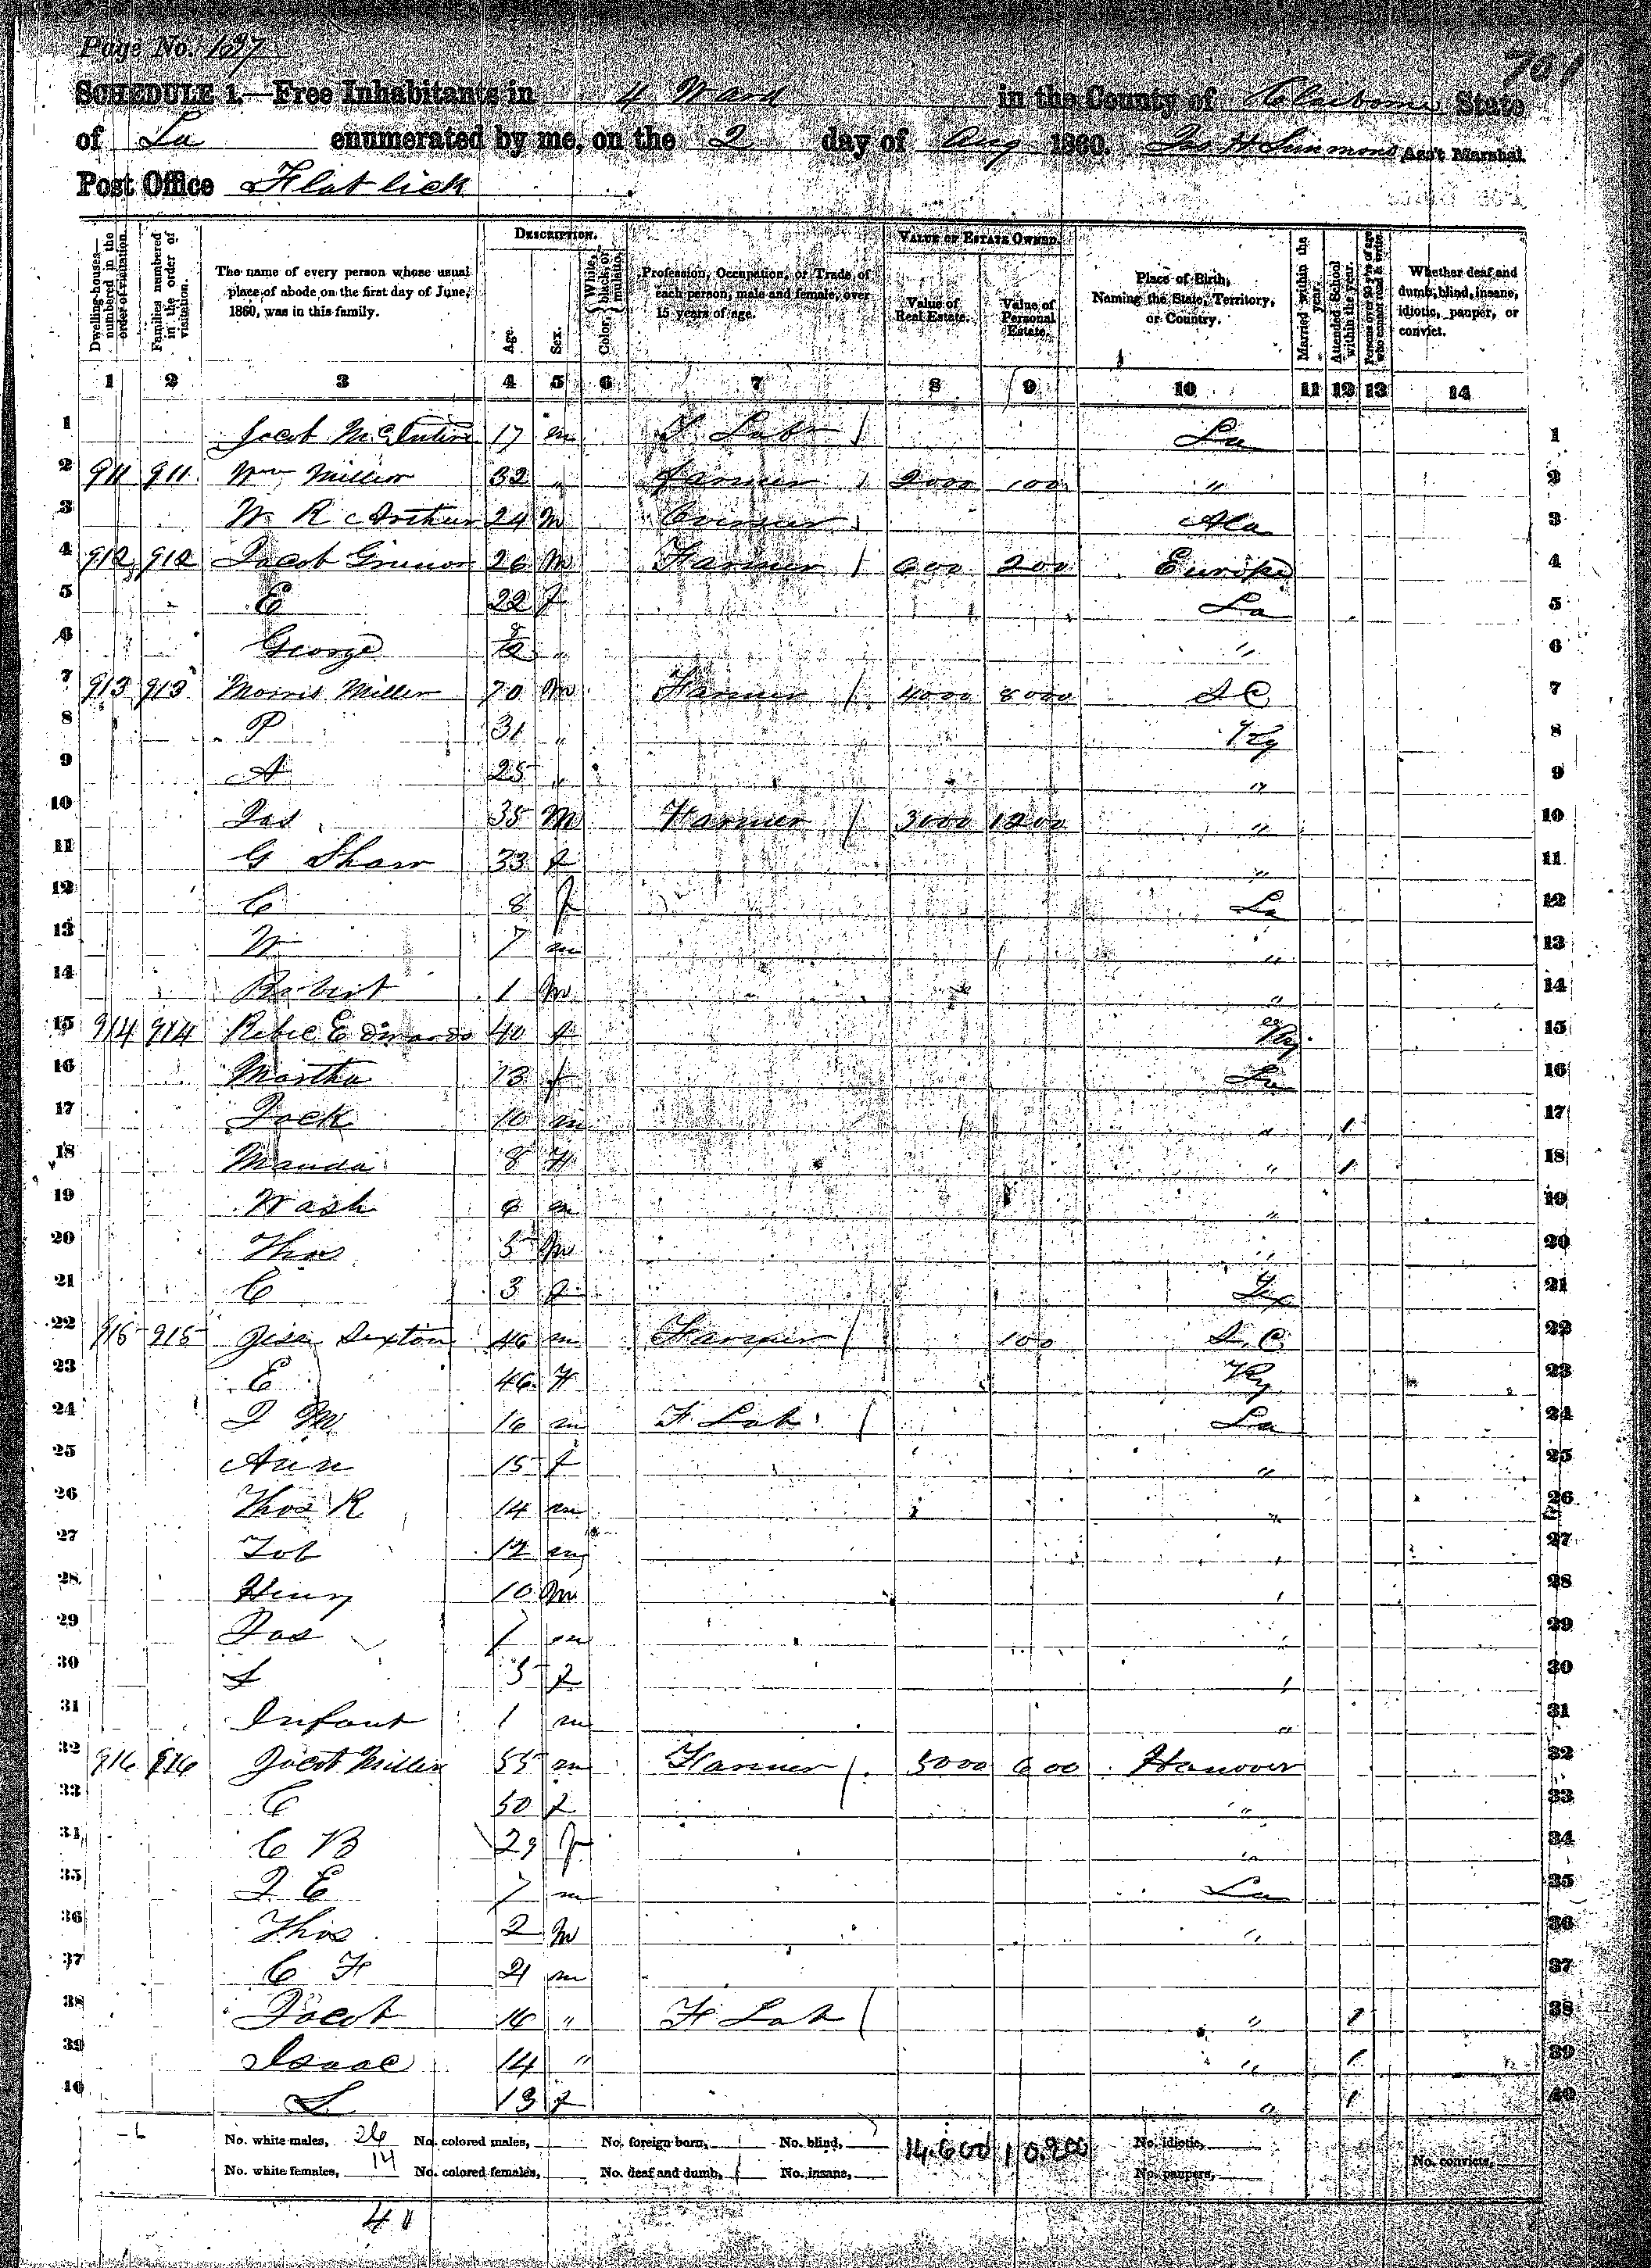 Page No. 167
701
SCHEDULE 1.—Free Inhabitants in 4 Ward in the County of Claiborne State
of La enumerated by me, on the 2 day of Aug 1860. Jas H Simmons Ass't Marshal.
Post Office Flat lick
Dwelling-houses—numbered in the order of visitation.
Families numbered in the order of visitation.
The name of every person whose usual place of abode on the first day of June, 1860, was in this family.
DESCRIPTION.
Age.
Sex.
Color, {White, black, or mulatto.
Profession, Occupation, or Trade of each person, male and female, over 15 years of age.
VALUE OF ESTATE OWNED.
Value of Real Estate.
Value of Personal Estate.
Place of Birth, Naming the State, Territory, or Country.
Married within the year.
Attended School within the year.
Persons over 20 y'rs of age who cannot read & write.
Whether deaf and dumb, blind, insane, idiotic, pauper, or convict.
1 2 3 4 5 6 7 8 9 10 11 12 13 14
1 Jacob 17 m F Lab / La 1
2 911 911 Wm Miller 32 " Farmer / 2000 100 " 2
3 W R 24 M Ala 3
4 912 912 Jacob 26 M Farmer / 600 200 Europe 4
5 E 22 f La 5
6 George " " 6
7 913 913 Morris Miller 70 M Farmer / 4000 8000 S C 7
8 P 31 " Ky 8
9 A 25 " " 9
10 Jas 35 M Farmer / 3000 1200 " 10
11 G Shaw 33 f " 11
12 C 8 f La 12
13 W 7 m " 13
14 Robert 1 M " 14
15 914 914 Rebec Edwards 40 f Ky 15
16 Martha 13 f La 16
17 Jack 10 m " 1 17
18 Manda 8 F " 1 18
19 Wash 6 m " 19
20 Thos 5 M " 20
21 C 3 f Tex 21
22 915 915 Jesse Sexton 46 m Farmer / 100 S. C. 22
23 E 46 F Ky 23
24 J M 16 m F Lab / La 24
25 Ann 15 f " 25
26 Thos R 14 m " 26
27 Job 12 m " 27
28 Henry 10 M " 28
29 Jas 7 m " 29
30 L 5 f " 30
31 Infant 1 m " 31
32 916 916 Jacob Miller 55 m Farmer / 5000 600 Hanover 32
33 C 50 f " 33
34 C B 29 f " 34
35 J E 7 m La 35
36 Thos 2 M " 36
37 C F 21 m 37
38 Jacob 16 " F Lab / " 1 38
39 Isaac 14 " " 1 39
40 L 13 f " 1 40
6 No. white males, 26 No. colored males, No. foreign born, No. blind, 14.600 10.200 No. idiotic,
No. white females, 14 No. colored females, No. deaf and dumb, No. insane, No. paupers, No. convicts,